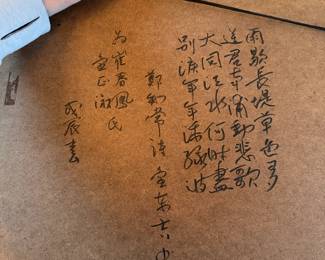 雨歇長堤草色多
送君南浦動悲歌
大同江水何時盡
別淚年年添綠波
鄭知常詩
為崔春風氏
戊辰春